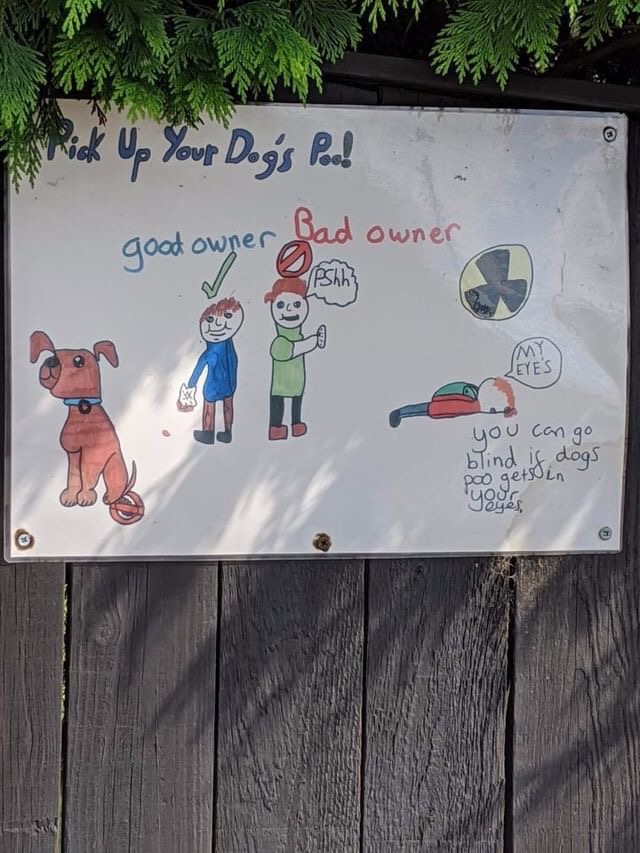 Pick Up Your Dog's Poo!
good owner
Bad owner
PShh
MY
EYE'S
you can go
blind if dogs
poo gets in
your
eyes